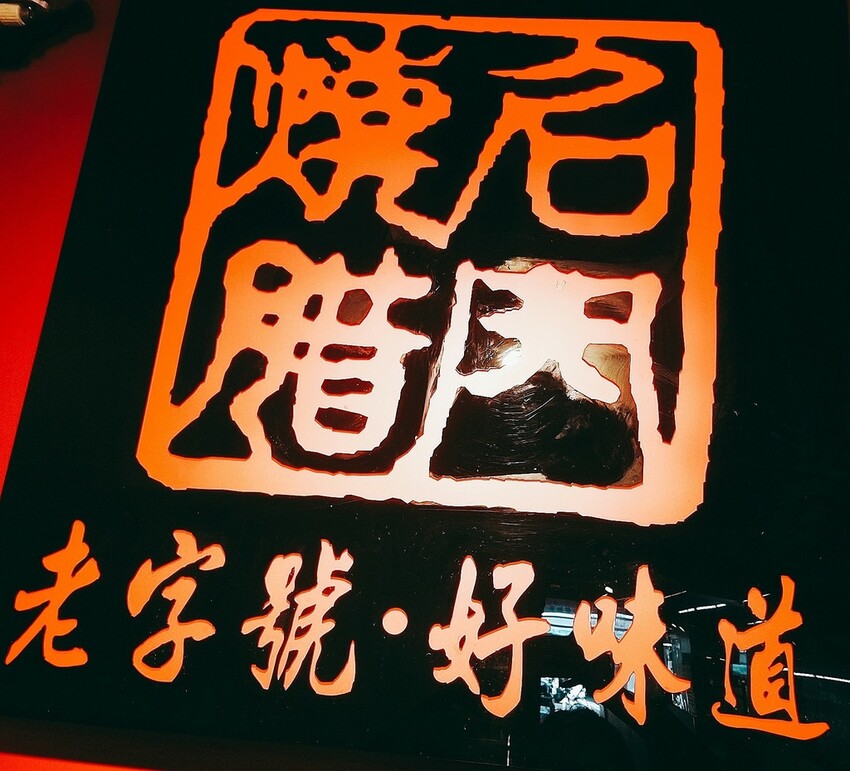 燒腊
老字號·好味道